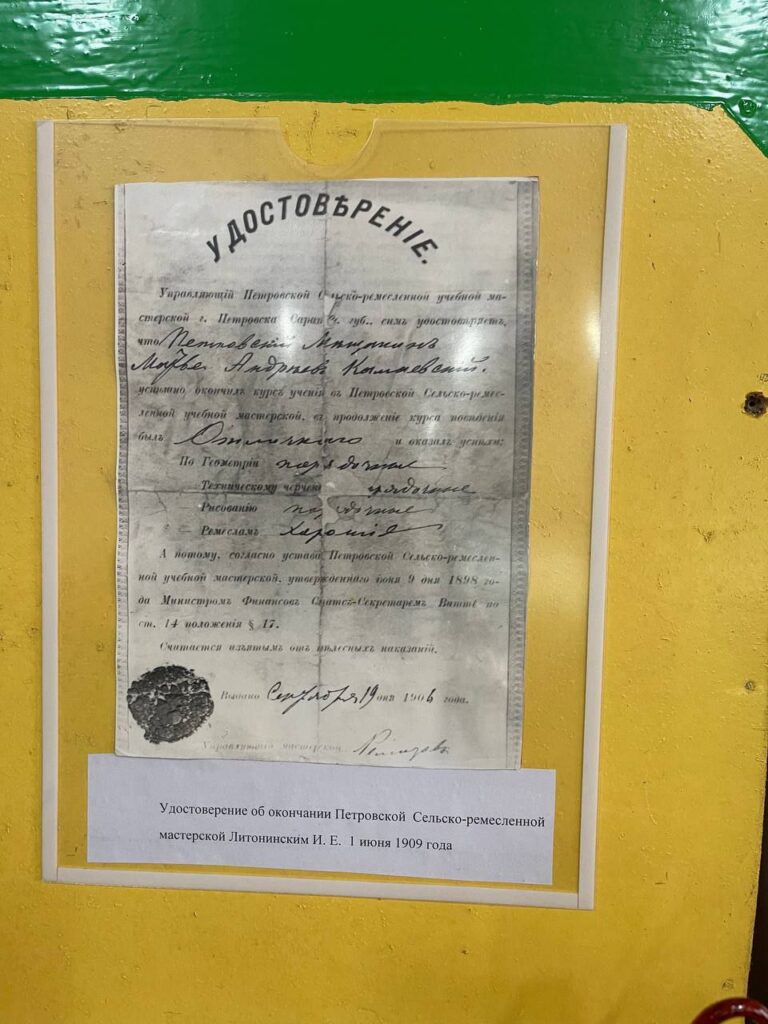 УДОСТОВѢРЕНІЕ.
Управляющій Петровской Сельско-ремесленной учебной ма-
стерской г. Петровска Сарат. губ., симъ удостовѣряетъ,
что Петровскій Мѣщанинъ
Андреевъ
успѣшно окончилъ курсъ ученія въ Петровской Сельско-ремес-
ленной учебной мастерской, въ продолженіе курса поведенія
былъ Отличнаго и оказалъ успѣхи:
По Геометріи порядочные
Техническому черченію порядочные
Рисованію порядочные
— Ремесламъ Хорошіе
А потому, согласно устава Петровской Сельско-ремеслен-
ной учебной мастерской, утвержденнаго іюня 9 дня 1898 го-
да Министромъ Финансовъ Статсъ-Секретаремъ Витте по
ст. 14 положенія § 17.
Считается изъятымъ отъ тѣлесныхъ наказаній.
Выдано Сентября 19 дня 1906 года.
Управляющій мастерской
Удостоверение об окончании Петровской Сельско-ремесленной
мастерской Литонинским И. Е. 1 июня 1909 года